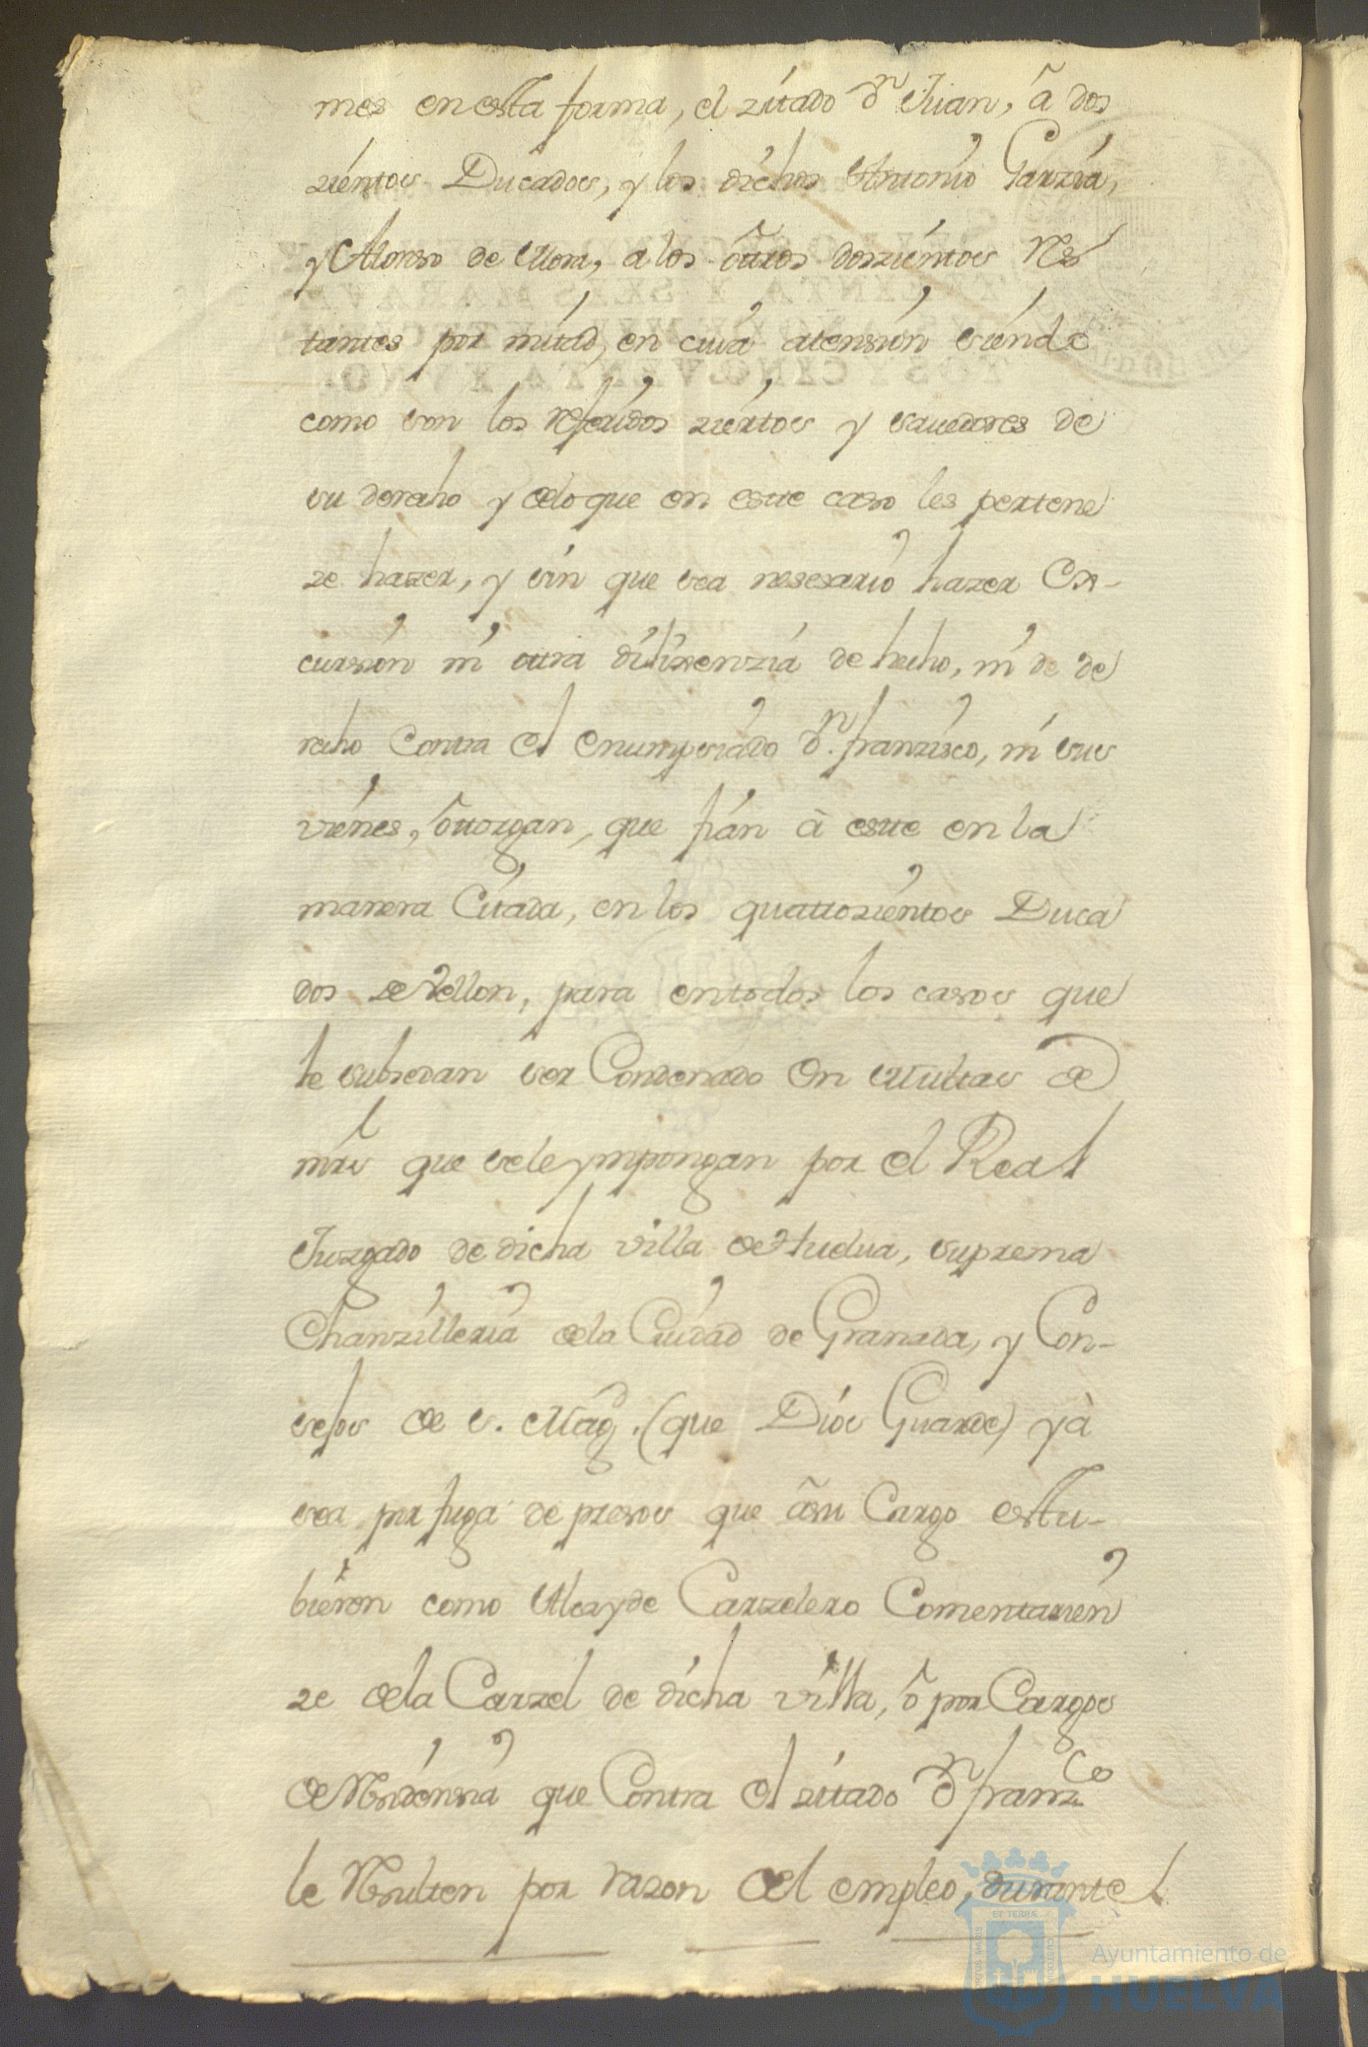 mes en esta forma, el zitado Dn Juan, â dos
zientos Ducados, y los dichos Antonio Garzia,
y Alonso de Mora, a los ôtros doszientos Res
tantes por mitad, en cuia atension siendo
como son los Referidos ziertos y savedores de
su derecho y de lo que en este caso les pertene
ze hazer, y sin que sea nesesario hazer Ex-
cursion ni otra dilixenzia de hecho, ni de de
recho Contra el enumpsiado Dn. franzisco, ni sus
vienes, ôtorgan, que fian à este en la
manera Citada, en los quattrozientos Duca
dos de Vellon, para en todos los casos que
le subsedan ser Condenado en Multas de
mrs que se le ympongan por el Real
Juzgado de dicha villa de Huelva, suprema
Chanzilleria de la Ciudad de Granada, y Con-
sejos de S. Magd. (que Dios Guarde) yà
sea por fuga de presos que âsu Cargo estu-
bieron como Alcayde Carzelero Comentarien
ze de la Carzel de dicha villa, ô por Cargos
de Residensia que Contra el zitado Dn franzco
le Resulten por razon del empleo, durante l
SELLO
TREINTA Y SEIS MARAVE
TOS Y CINQVENTA Y VNO.
Ayuntamiento de
HUELVA